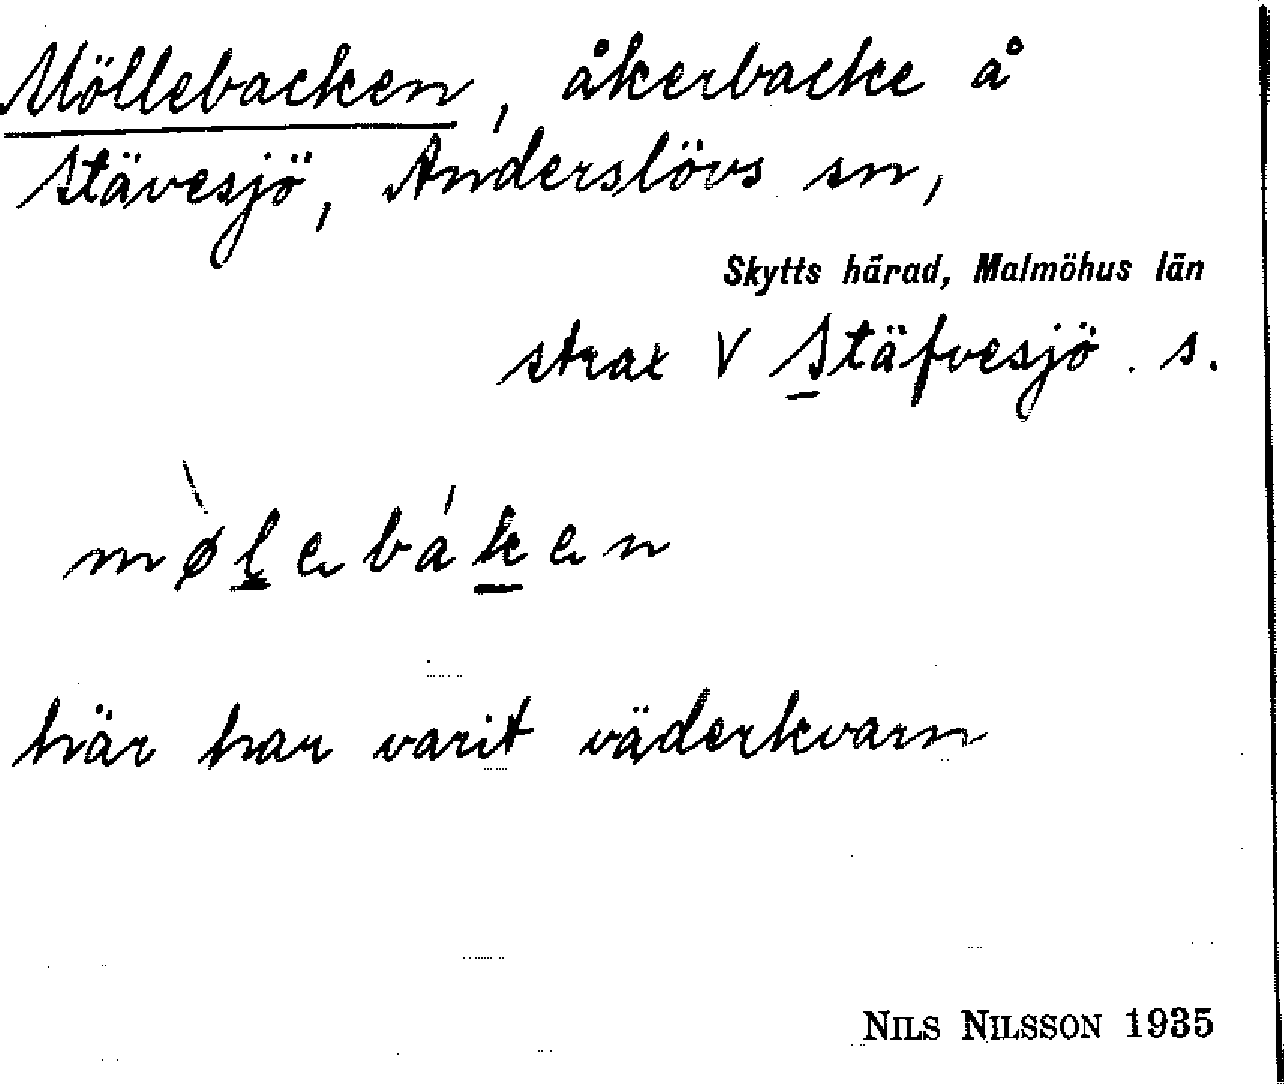 Möllebacken, åkerbacke å
Stävesjö, Anderslövs sn,
Skytts härad, Malmöhus län
strax V Stäfvesjö. s.
mø̀lebáken
här har varit väderkvarn
NILS NILSSON 1935